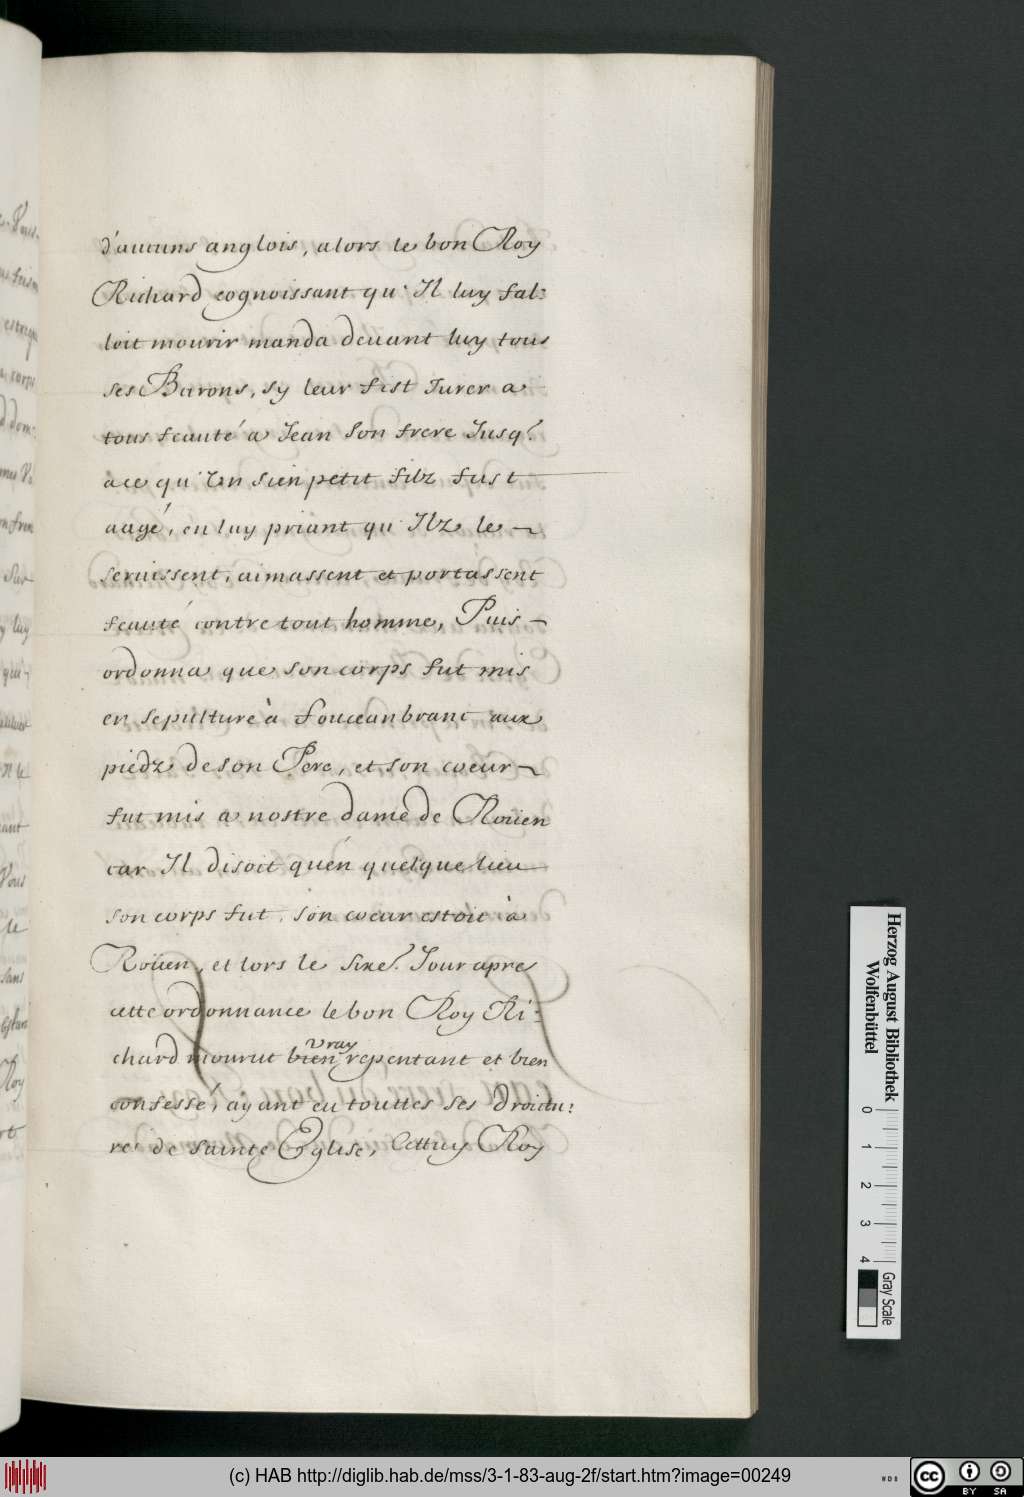 d'aucuns anglois, alors le bon Roy
Richard cognoissant qu'Il luy fal:
loit mourir manda devant luy tous
ses Barons, sy leur fist Jurer a
tous feauté a Jean son frere Jusq.
a ce qu'Un sien petit filz fust
aagé, en luy priant qu'Ilz le
seruissent, aimassent et portassent
feauté contre tout homme, Puis
ordonna que son corps fut mis
en sepulture à Fouceanbranc aux
piedz de son Pere, et son coeur
fut mis a nostre dame de Roüen
car Il disoit qu'en quelque lieu
son corps fut, son coeur estoit à
Roüen, et lors le sixe. Jour apres
cette ordonnance le bon Roy Ri:
chard mourut bien vray repentant et bien
confessé, ayant eu touttes ses droictu:
res de sainte Eglise, Cettuy Roy
Herzog August Bibliothek
Wolfenbüttel
0 1 2 3 4
Gray Scale
(c) HAB http://diglib.hab.de/mss/3-1-83-aug-2f/start.htm?image=00249
WDB
cc BY SA